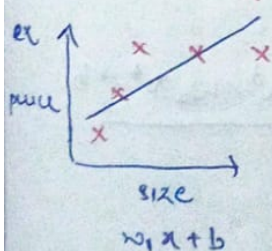 ex
price
size
w₁x+b